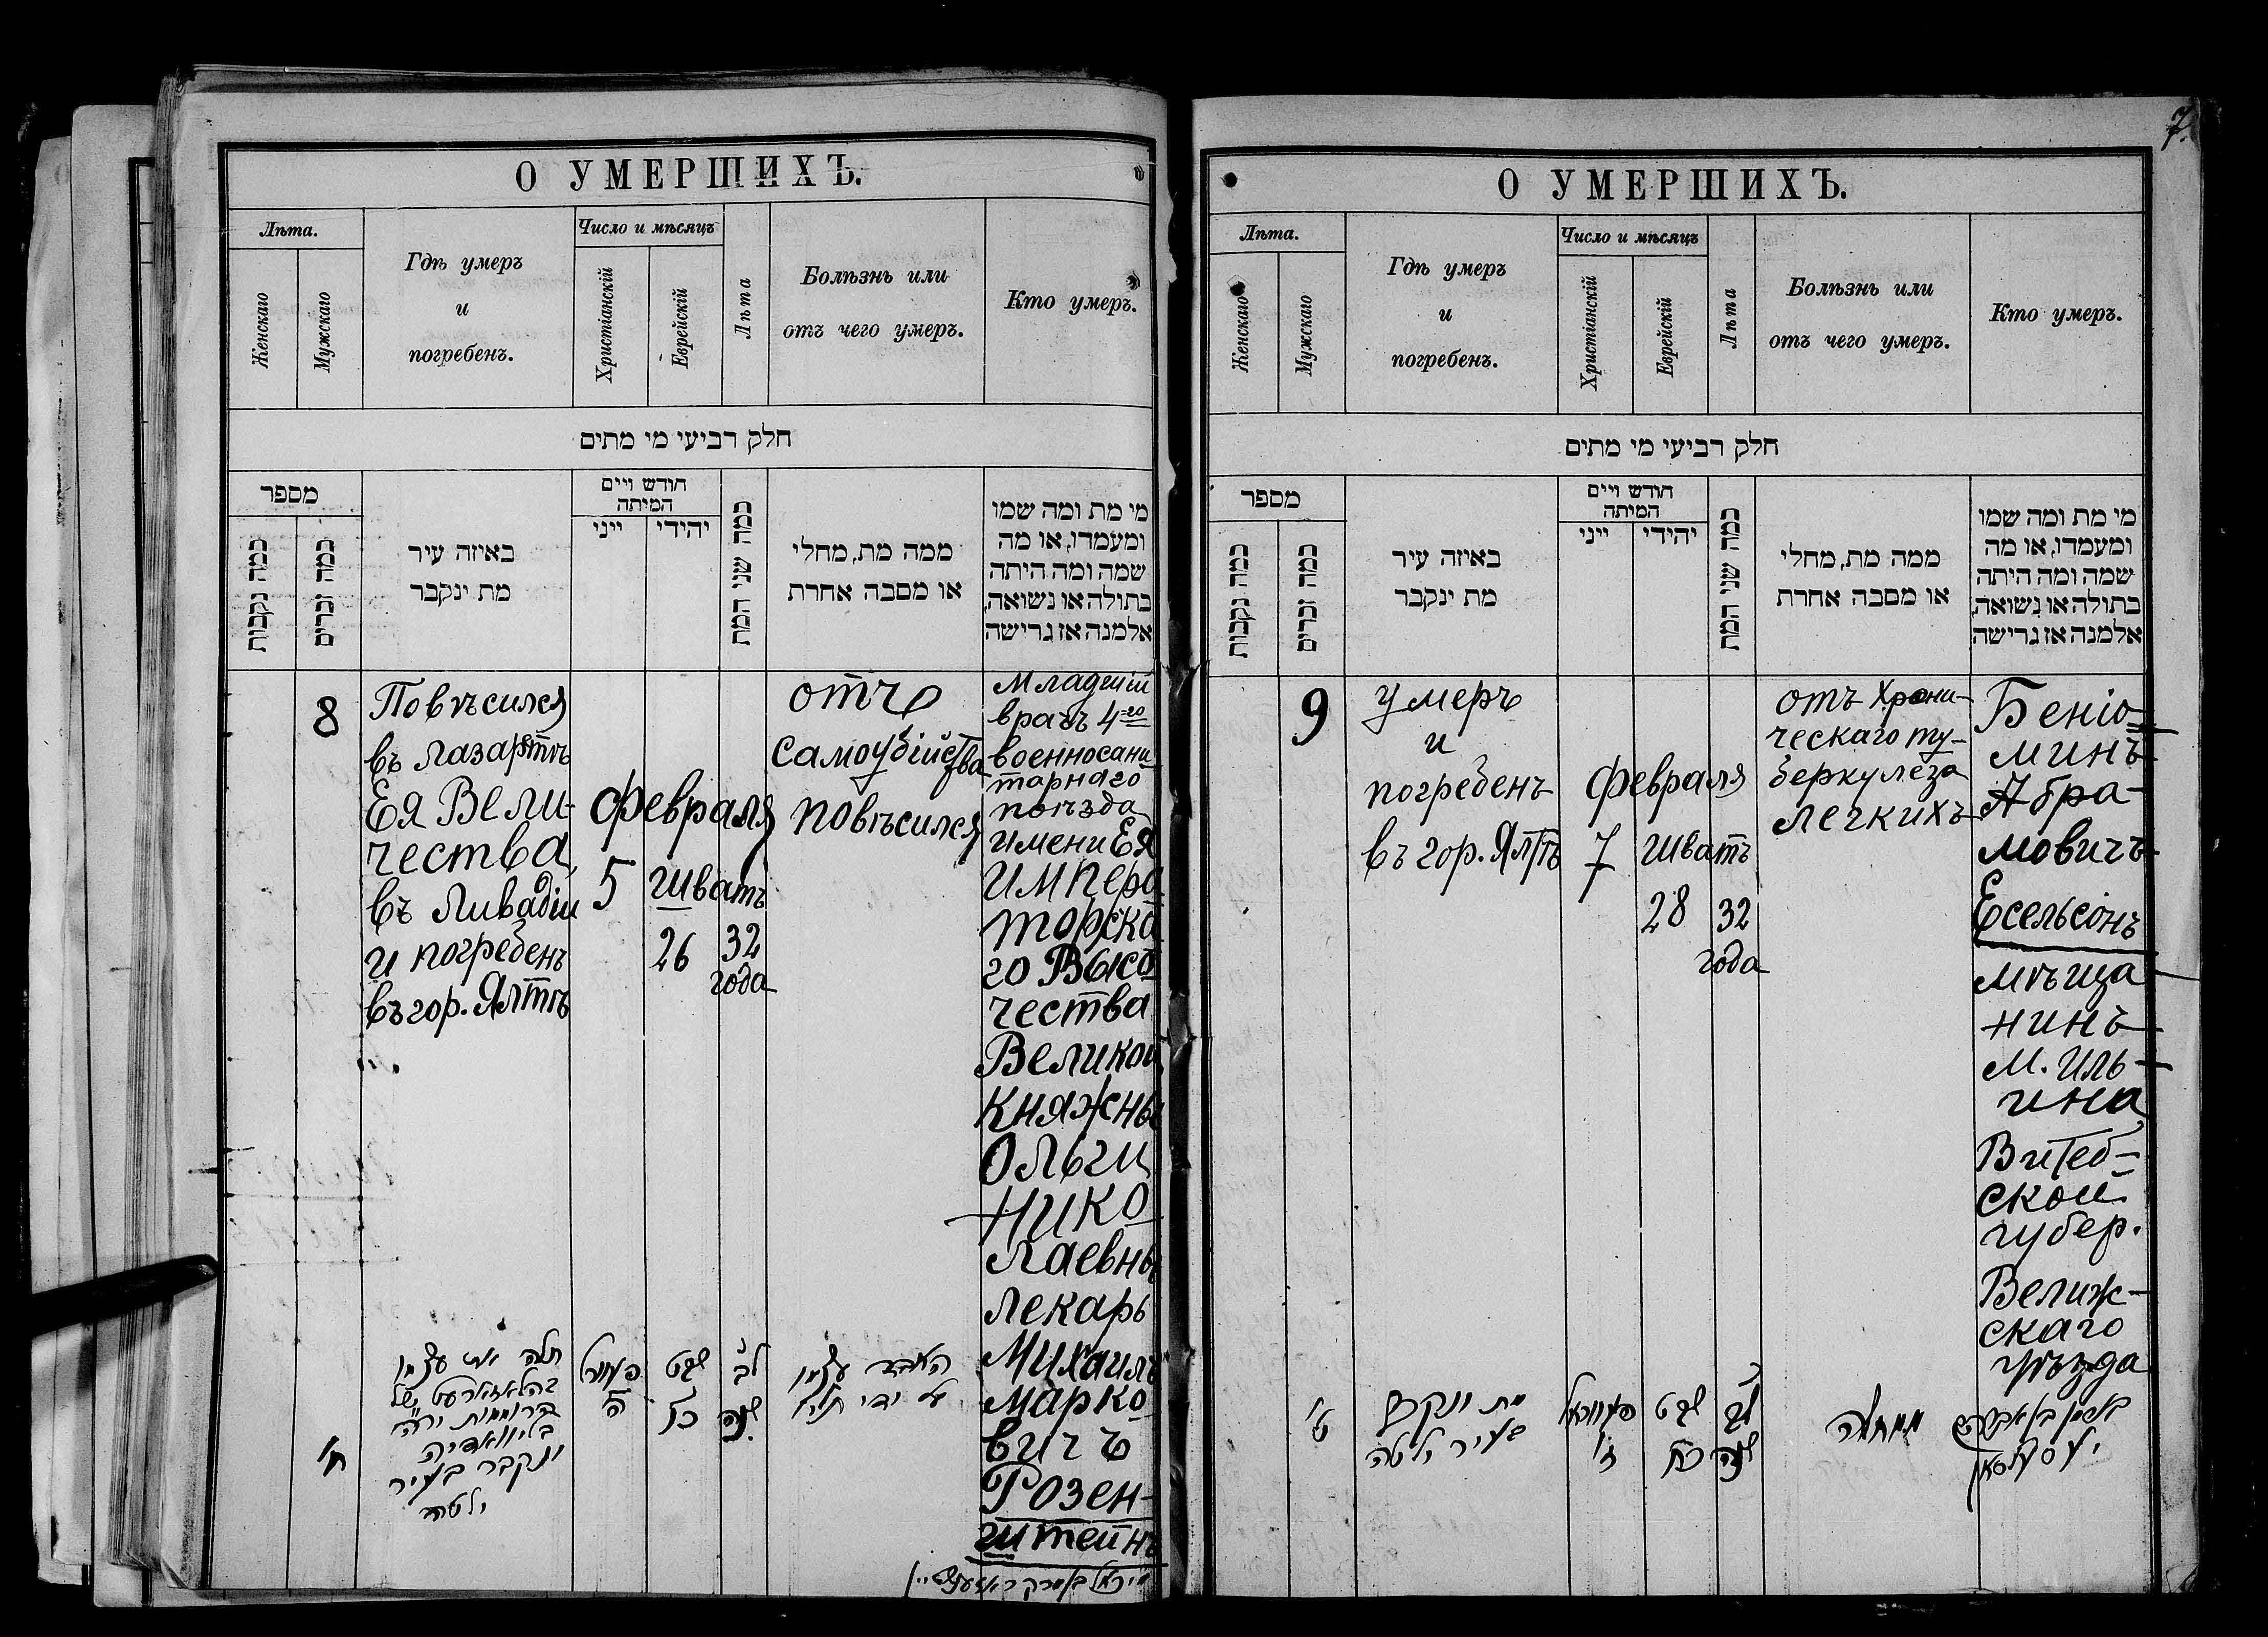 О УМЕРШИХЪ.
Лѣта.
Женскаго
Мужскаго
Гдѣ умеръ
и
погребенъ.
Число и мѣсяцъ
Христіанскій
Еврейскій
Лѣта
Болѣзнь или
отъ чего умеръ.
Кто умеръ.
חלק רביעי מי מתים
מספר
כמה נקבות
כמה זכרים
באיזה עיר
מת ינקבר
חודש ויים
המיתה
ייני
יהידי
כמה שני המת
ממה מת, מחלי
או מסבה אחרת
מי מת ומה שמו
ומעמדו, או מה
שמה ומה היתה
בתולה או נשואה,
אלמנה אז גרישה
8
Повѣсился
въ лазаретѣ
Ея Вели-
чества,
въ Ливадіи
и погребенъ
въ гор. Ялтѣ
Февраля
5
Шватъ
26
32
года
отъ
самоубійства
повѣсился
Младшій
врачъ 4-го
военносани
тарнаго
поѣзда
имени Ея
Импера
торска
го Высо
чества
Великой
Княжны
Ольги
Нико
лаевны
лекарь
Михаилъ
Марко
вичъ
Розен-
штейнъ
ח'
תלה את עצמו
בהלאזארעט של
הרוממות יר"ה
בליוואדיה
ונקבר בעיר
ילטה
ה'
שבט
כו
לב
שנה
האבד עצמו
על ידי תליה
7.
О УМЕРШИХЪ.
Лѣта.
Женскаго
Мужскаго
Гдѣ умеръ
и
погребенъ.
Число и мѣсяцъ
Христіанскій
Еврейскій
Лѣта
Болѣзнь или
отъ чего умеръ.
Кто умеръ.
חלק רביעי מי מתים
מספר
כמה נקבות
כמה זכרים
באיזה עיר
מת ינקבר
חודש ויים
המיתה
ייני
יהידי
כמה שני המת
ממה מת, מחלי
או מסבה אחרת
מי מת ומה שמו
ומעמדו, או מה
שמה ומה היתה
בתולה או נשואה,
אלמנה אז גרישה
9
умеръ
и
погребенъ
въ гор. Ялтѣ
Февраля
7
Шватъ
28
32
года
отъ хрони-
ческаго ту-
беркулеза
легкихъ
Беніо-
минъ
Абра-
мовичъ
Есельсонъ
мѣща
нинъ
м. Иль-
ина
Витеб-
ской
губер.
Велиж-
скаго
уѣзда
ט'
מת ונקבר
בעיר ילטה
ז'
שבט
כח
לב
שנה
ממחלה